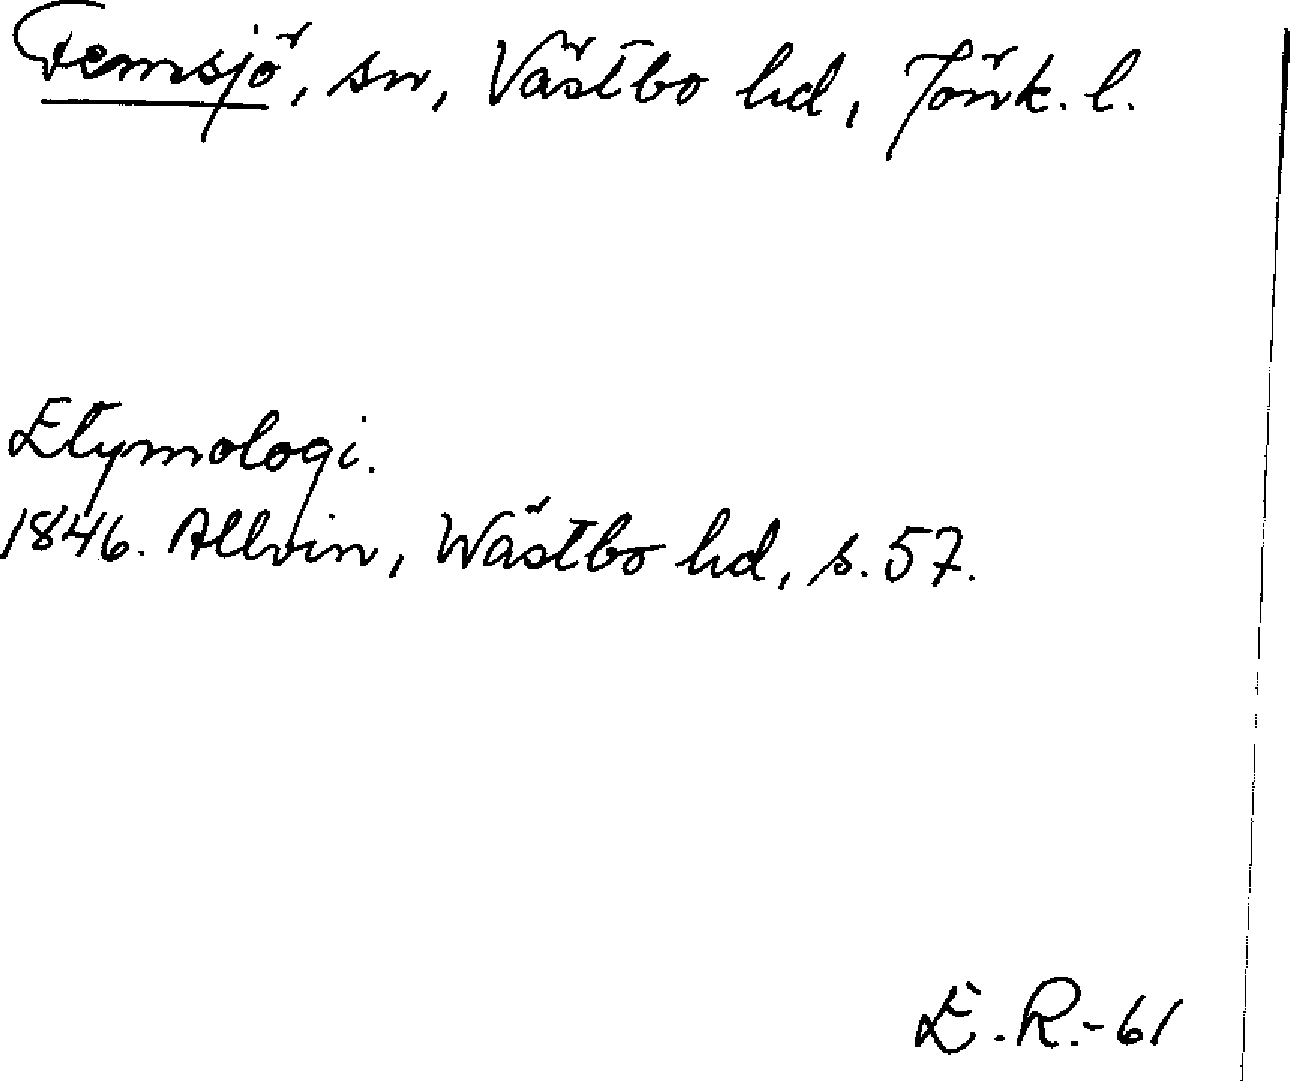 Femsjö, sn, Västbo hd, Jönk. l.
Etymologi.
1846. Allvin, Wästbo hd, s. 57.
E. R. -61